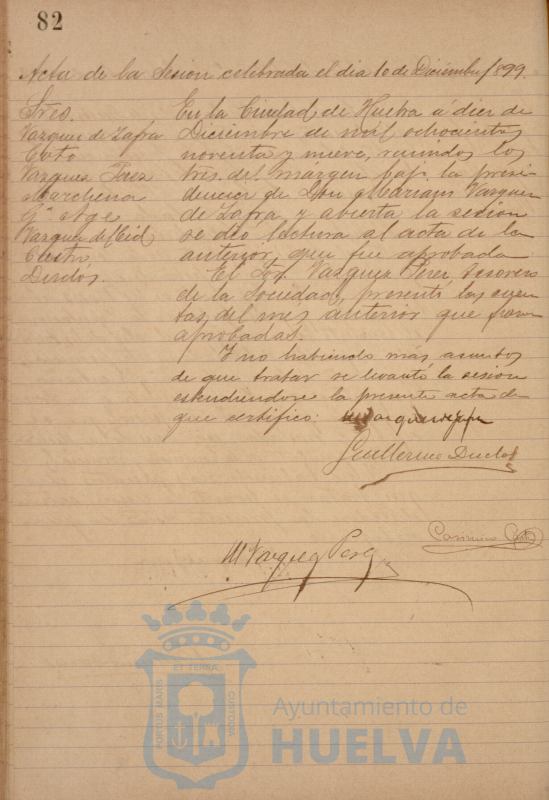 82
Acta de la Sesion celebrada el dia 10 de Diciembre 1899.
Sres.
Vazquez de Zafra
Coto
Vazquez Perez
Marchena
Vazquez del Cid
Duclos.
En la Ciudad de Huelva á diez de
Diciembre de mil ochocientos
noventa y nueve, reunidos los
Sres. del margen bajo la presi-
dencia de Don Mariano Vazquez
de Zafra y abierta la sesion
se dió lectura al acta de la
anterior, que fue aprobada.
El Sor. Vazquez Perez tesorero
de la Sociedad, presentó las cuen-
tas del mes anterior que fueron
aprobadas.
Y no habiendo más asuntos
de que tratar se levantó la sesion
estendiendose la presente acta de
que certifico:
Guillermo Duclos
M Vazquez Perez
ET TERRA
PORTUS MARIS
CUSTODIA
Ayuntamiento de
HUELVA